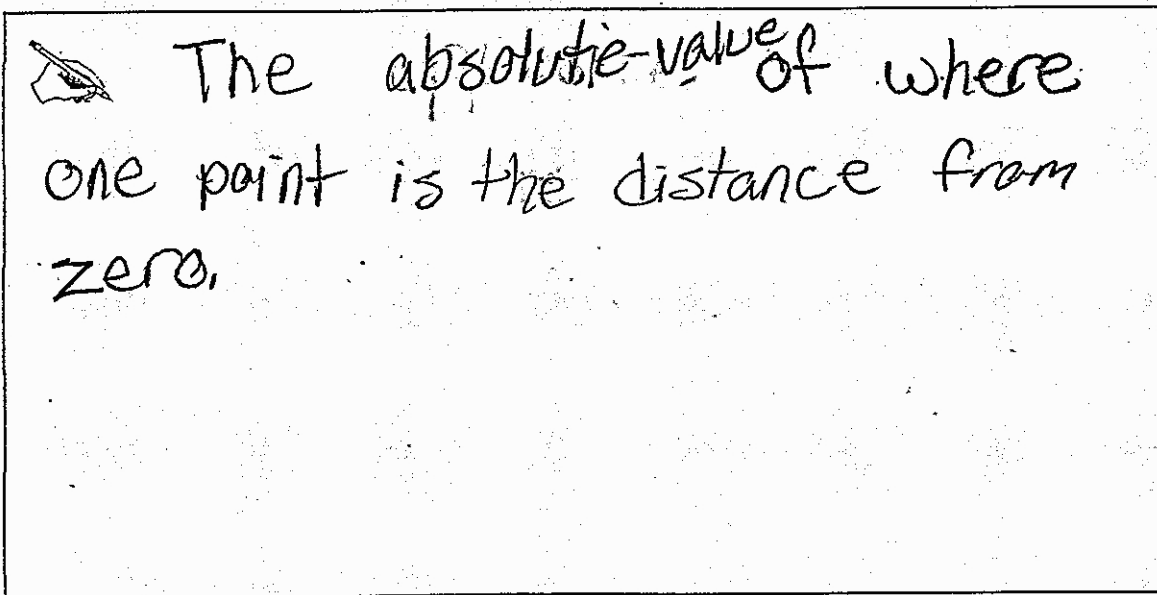 The absolute-value of where
one point is the distance from
zero.